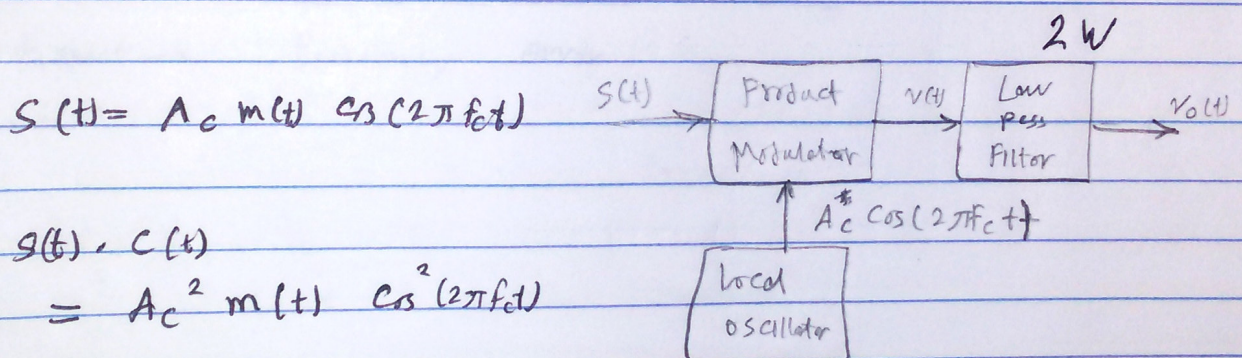 2W
S(t) = Ac m(t) cos(2πfct)
S(t)
Product
Modulator
v(t)
Low
pass
Filter
vo(t)
Ac* Cos(2πfct)
s(t). C(t)
= Ac² m(t) Cos²(2πfct)
Local
oscillator